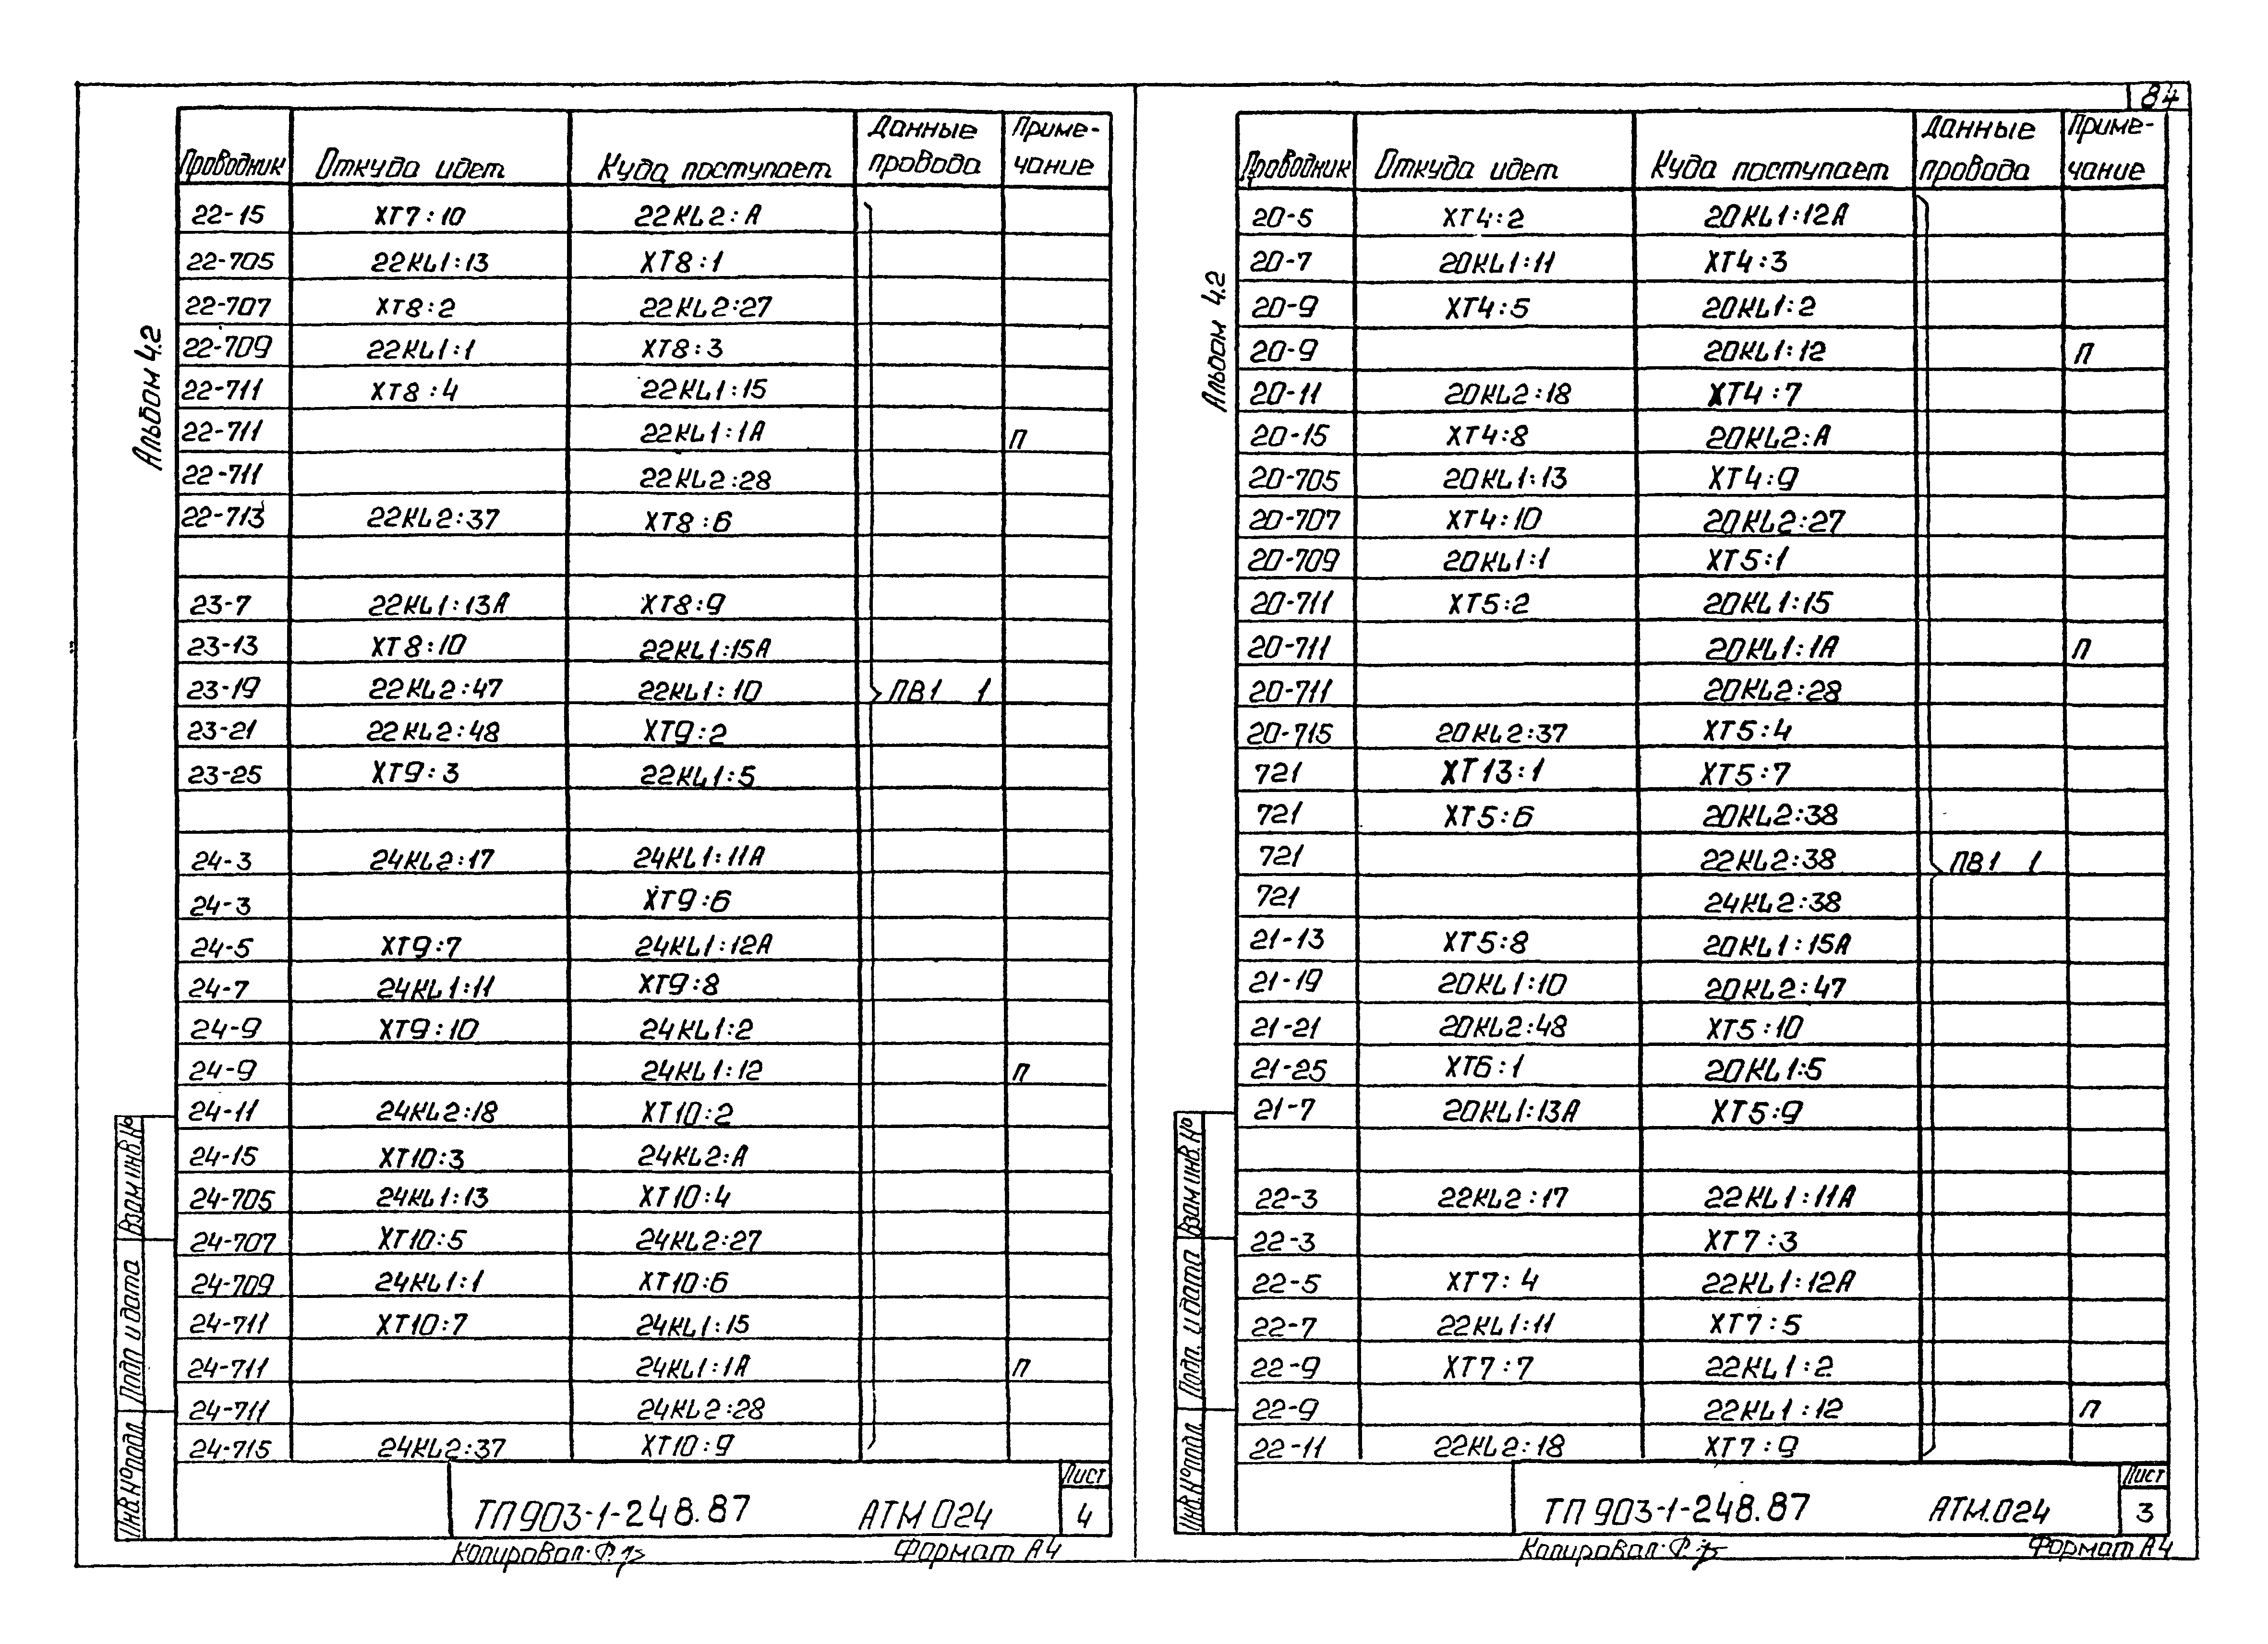 84
Альбом 4.2
Проводник Откуда идет Куда поступает Данные провода Приме-чание
22-15 XT7:10 22KL2:A
22-705 22KL1:13 XT8:1
22-707 XT8:2 22KL2:27
22-709 22KL1:1 XT8:3
22-711 XT8:4 22KL1:15
22-711 22KL1:1A П
22-711 22KL2:28
22-713 22KL2:37 XT8:6
23-7 22KL1:13A XT8:9
23-13 XT8:10 22KL1:15A
23-19 22KL2:47 22KL1:10 ПВ1 1
23-21 22KL2:48 XT9:2
23-25 XT9:3 22KL1:5
24-3 24KL2:17 24KL1:11A
24-3 XT9:6
24-5 XT9:7 24KL1:12A
24-7 24KL1:11 XT9:8
24-9 XT9:10 24KL1:2
24-9 24KL1:12 П
24-11 24KL2:18 XT10:2
24-15 XT10:3 24KL2:A
24-705 24KL1:13 XT10:4
24-707 XT10:5 24KL2:27
24-709 24KL1:1 XT10:6
24-711 XT10:7 24KL1:15
24-711 24KL1:1A П
24-711 24KL2:28
24-715 24KL2:37 XT10:9
Взам инв.№
Подп и дата
Инв.№ подл.
ТП 903-1-248.87 АТМ 024
Лист
4
Копировал: Формат А4
Альбом 4.2
Проводник Откуда идет Куда поступает Данные провода Приме-чание
20-5 XT4:2 20KL1:12A
20-7 20KL1:11 XT4:3
20-9 XT4:5 20KL1:2
20-9 20KL1:12 П
20-11 20KL2:18 XT4:7
20-15 XT4:8 20KL2:A
20-705 20KL1:13 XT4:9
20-707 XT4:10 20KL2:27
20-709 20KL1:1 XT5:1
20-711 XT5:2 20KL1:15
20-711 20KL1:1A П
20-711 20KL2:28
20-715 20KL2:37 XT5:4
721 XT13:1 XT5:7
721 XT5:6 20KL2:38
721 22KL2:38 ПВ1 1
721 24KL2:38
21-13 XT5:8 20KL1:15A
21-19 20KL1:10 20KL2:47
21-21 20KL2:48 XT5:10
21-25 XT6:1 20KL1:5
21-7 20KL1:13A XT5:9
22-3 22KL2:17 22KL1:11A
22-3 XT7:3
22-5 XT7:4 22KL1:12A
22-7 22KL1:11 XT7:5
22-9 XT7:7 22KL1:2
22-9 22KL1:12 П
22-11 22KL2:18 XT7:9
Взам инв.№
Подп. и дата
Инв.№ подл.
ТП 903-1-248.87 АТМ.024
Лист
3
Копировал: Формат А4